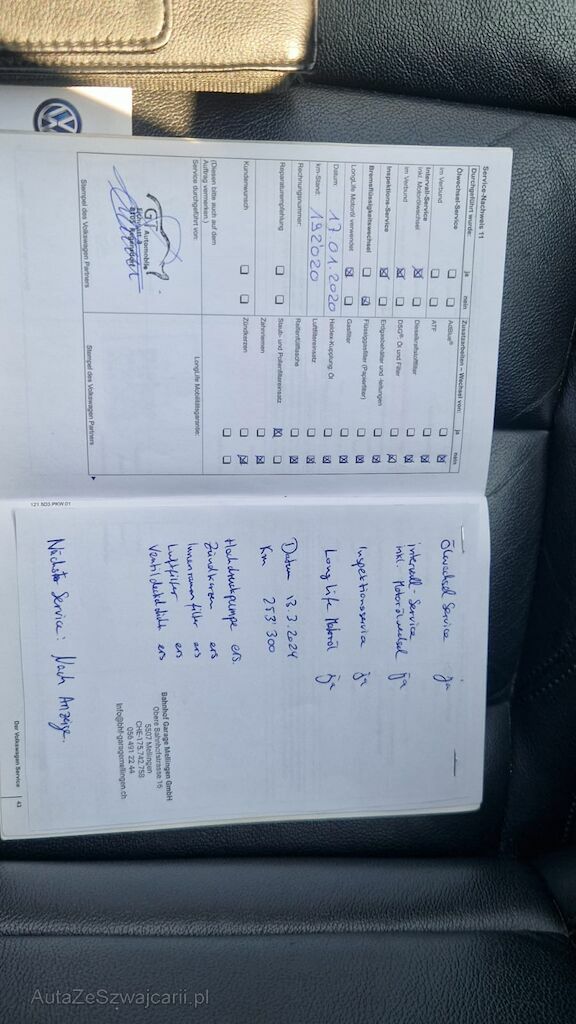 VW
Service-Nachweis 11
Durchgeführt wurde: ja nein
Ölwechsel-Service
im Verbund ☐ ☐
Intervall-Service
inkl. Motorölwechsel ☒ ☐
im Verbund ☒ ☐
Inspektions-Service ☒ ☐
Bremsflüssigkeitswechsel ☐ ☒
LongLife Motoröl verwendet ☒ ☐
Datum: 17.01.2020
km-Stand: 192020
Rechnungsnummer:
Reparaturempfehlung ☐ ☐
Kundenwunsch ☐ ☐
(Diesen bitte auch auf dem
Auftrag vermerken.)
Service durchgeführt von:
Automobile
Stempel des Volkswagen Partners
Zusatzarbeiten – Wechsel von: ja nein
AdBlue® ☐ ☒
ATF ☐ ☒
Dieselkraftstofffilter ☐ ☒
DSG® Öl und Filter ☐ ☒
Erdgasbehälter und -leitungen ☐ ☒
Flüssiggasfilter (Papierfilter) ☐ ☒
Gasfilter ☐ ☒
Haldex-Kupplung: Öl ☐ ☒
Luftfiltereinsatz ☐ ☒
Reifenfüllflasche ☐ ☒
Staub- und Pollenfiltereinsatz ☒ ☐
Zahnriemen ☐ ☒
Zündkerzen ☐ ☒
☐ ☐
LongLife Mobilitätsgarantie:
Stempel des Volkswagen Partners
121.5D3.PKW.01
Ölwechsel Service ja
intervall-Service
inkl. Motorölwechsel ja
Inspektionsservice ja
Long Life Motoröl ja
Datum 13.3.2024
Km 253'300
Hochdruckpumpe ers.
Zündkerzen ers
Innenraumfilter ers
Luftfilter ers
Ventildeckeldicht ers
Nächster Service: Nach Anzeige.
Bahnhof Garage Mellingen GmbH
Obere Bahnhofstrasse 16
5507 Mellingen
CHE-175.742.758
056 491 22 44
Info@bhf-garagemellingen.ch
Der Volkswagen Service 43
AutaZeSzwajcarii.pl